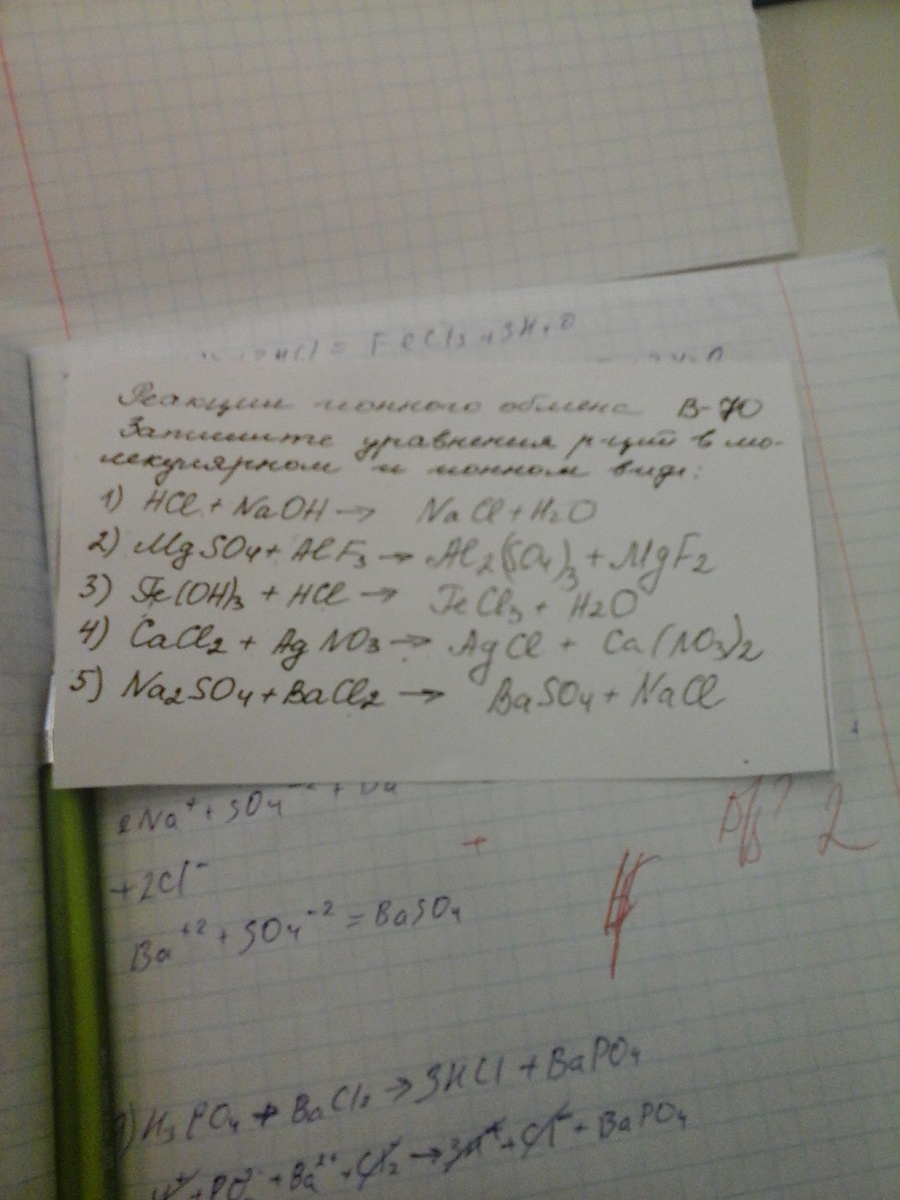 FeCl3 + 3H2O
Реакции ионного обмена В-70
Запишите уравнения р-ций в мо-
лекулярном и ионном виде:
1) HCl + NaOH → NaCl + H2O
2) MgSO4 + AlF3 → Al2(SO4)3 + MgF2
3) Fe(OH)3 + HCl → FeCl3 + H2O
4) CaCl2 + AgNO3 → AgCl + Ca(NO3)2
5) Na2SO4 + BaCl2 → BaSO4 + NaCl
2Na+ + SO4-2 +
+ 2Cl-
Ba+2 + SO4-2 = BaSO4
2
H3PO4 + BaCl2 → 3HCl + BaPO4
+ BaPO4